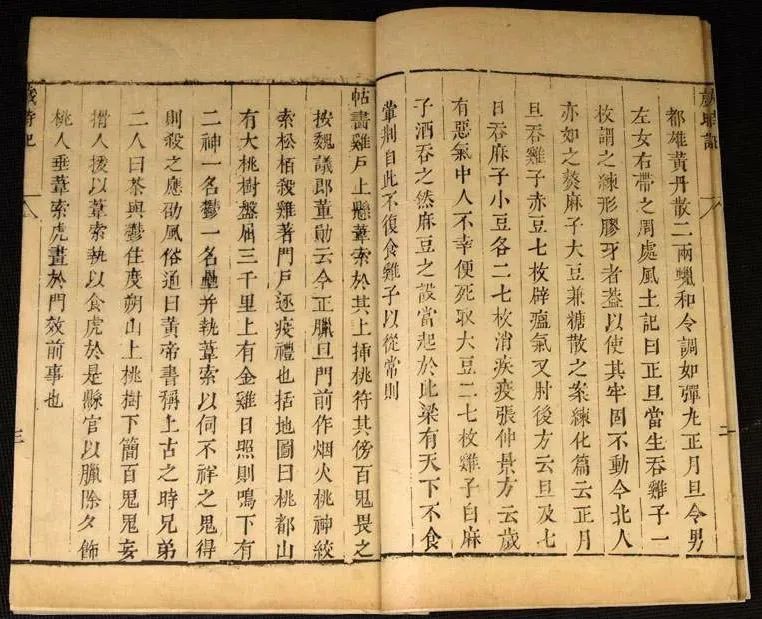 歲時記
二
都雄黃丹散二兩蠟和令調如彈丸正月旦令男
左女右帶之周處風土記曰正旦當生吞雞子一
枚謂之練形膠牙者蓋以使其牢固不動今北人
亦如之熬麻子大豆兼糖散之案練化篇云正月
旦吞雞子赤豆七枚辟瘟氣又肘後方云旦及七
日吞麻子小豆各二七枚消疾疫張仲景方云歲
有惡氣中人不幸便死取大豆二七枚雞子白麻
子酒吞之然麻豆之設當起於此梁有天下不食
葷荊自此不復食雞子以從常則
帖畫雞戶上懸葦索於其上挿桃符其傍百鬼畏之
按魏議郎董勛云今正臘旦門前作烟火桃神絞
索松栢殺雞著門戶逐疫禮也括地圖曰桃都山
有大桃樹盤屈三千里上有金雞日照則鳴下有
二神一名鬱一名壘并執葦索以伺不祥之鬼得
則殺之應劭風俗通曰黃帝書稱上古之時兄弟
二人曰荼與鬱住度朔山上桃樹下簡百鬼鬼妄
搰人援以葦索執以食虎於是縣官以臘除夕飾
桃人垂葦索虎畫於門效前事也
歲時記
三